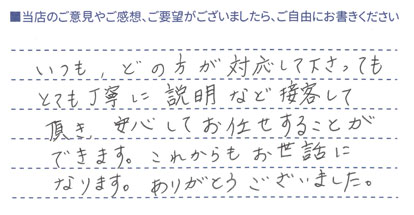 ■当店のご意見やご感想、ご要望がございましたら、ご自由にお書きください
いつも、どの方が対応して下さっても
とても丁寧に説明など接客して
頂き、安心してお任せすることが
できます。これからもお世話に
なります。ありがとうございました。